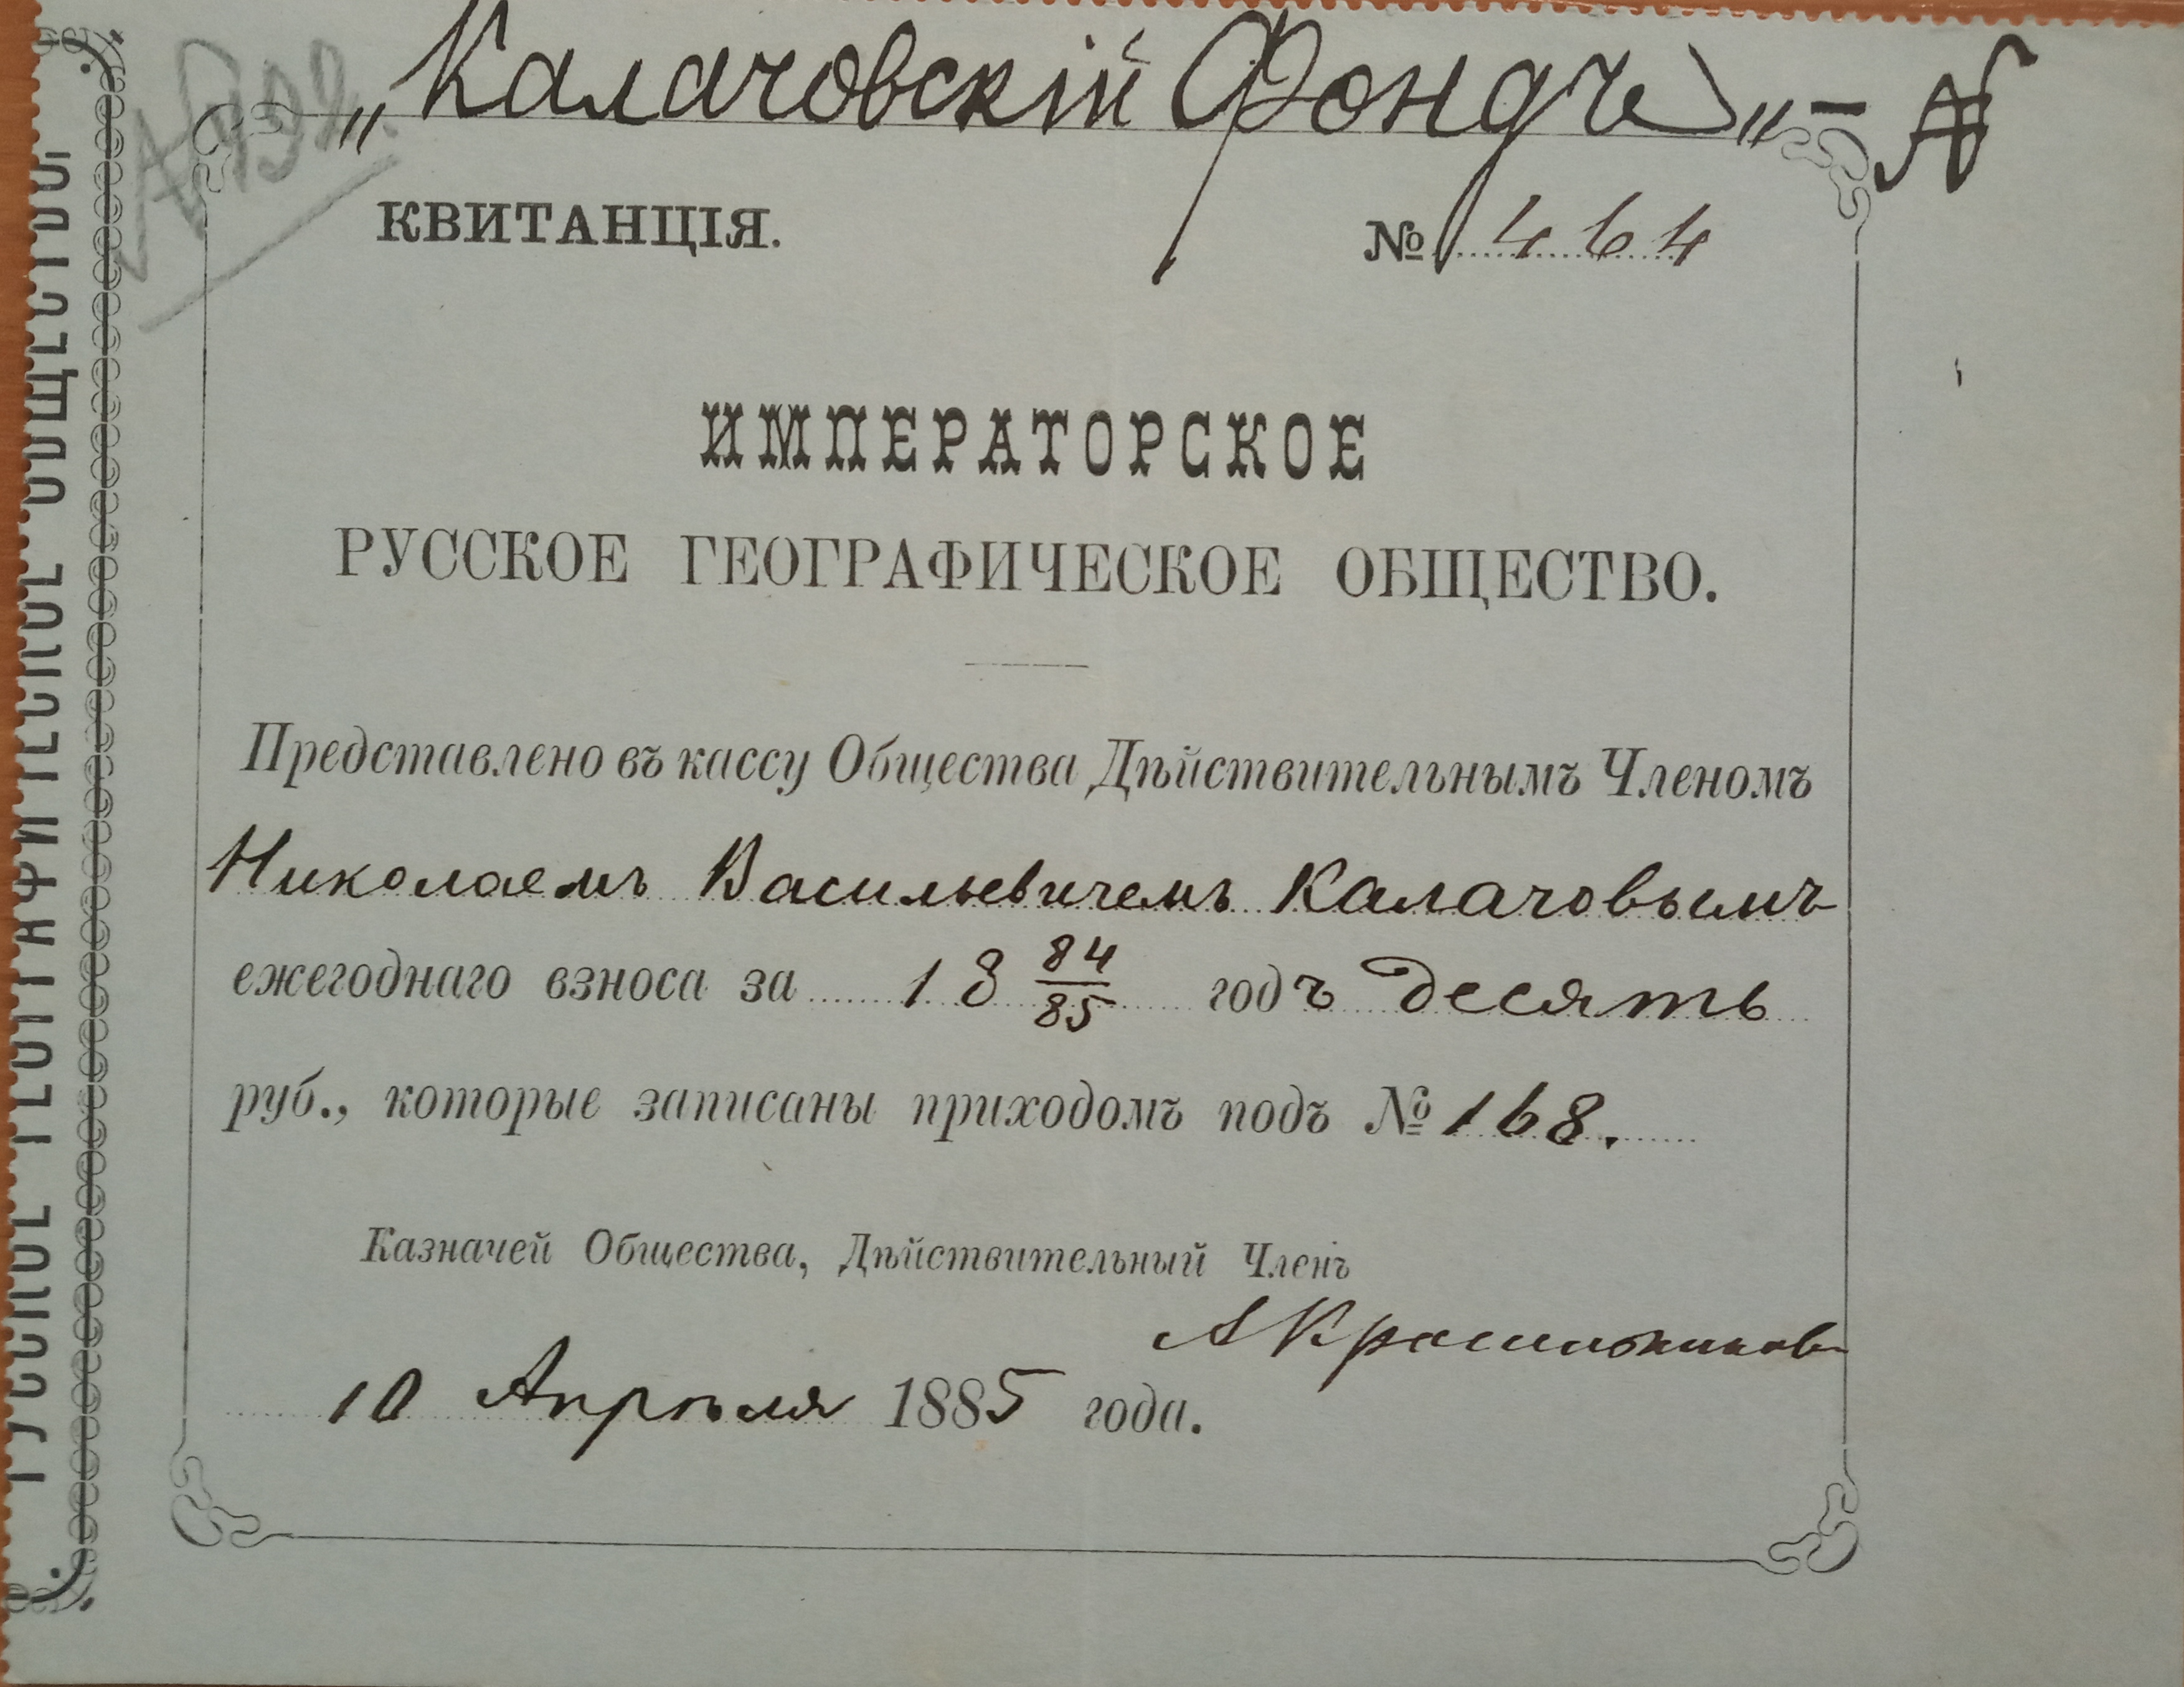 „Калачовскій Фондъ„ – №
№ 932.
КВИТАНЦІЯ. № 464
ИМПЕРАТОРСКОЕ
РУССКОЕ ГЕОГРАФИЧЕСКОЕ ОБЩЕСТВО.
Представлено въ кассу Общества Дѣйствительнымъ Членомъ
Николаемъ Васильевичемъ Калачовымъ
ежегоднаго взноса за 18 84/85 годъ десять
руб., которые записаны приходомъ подъ № 168.
Казначей Общества, Дѣйствительный Членъ
А Красильников
10 Апрѣля 1885 года.
РУССКОЕ ГЕОГРАФИЧЕСКОЕ ОБЩЕСТВО